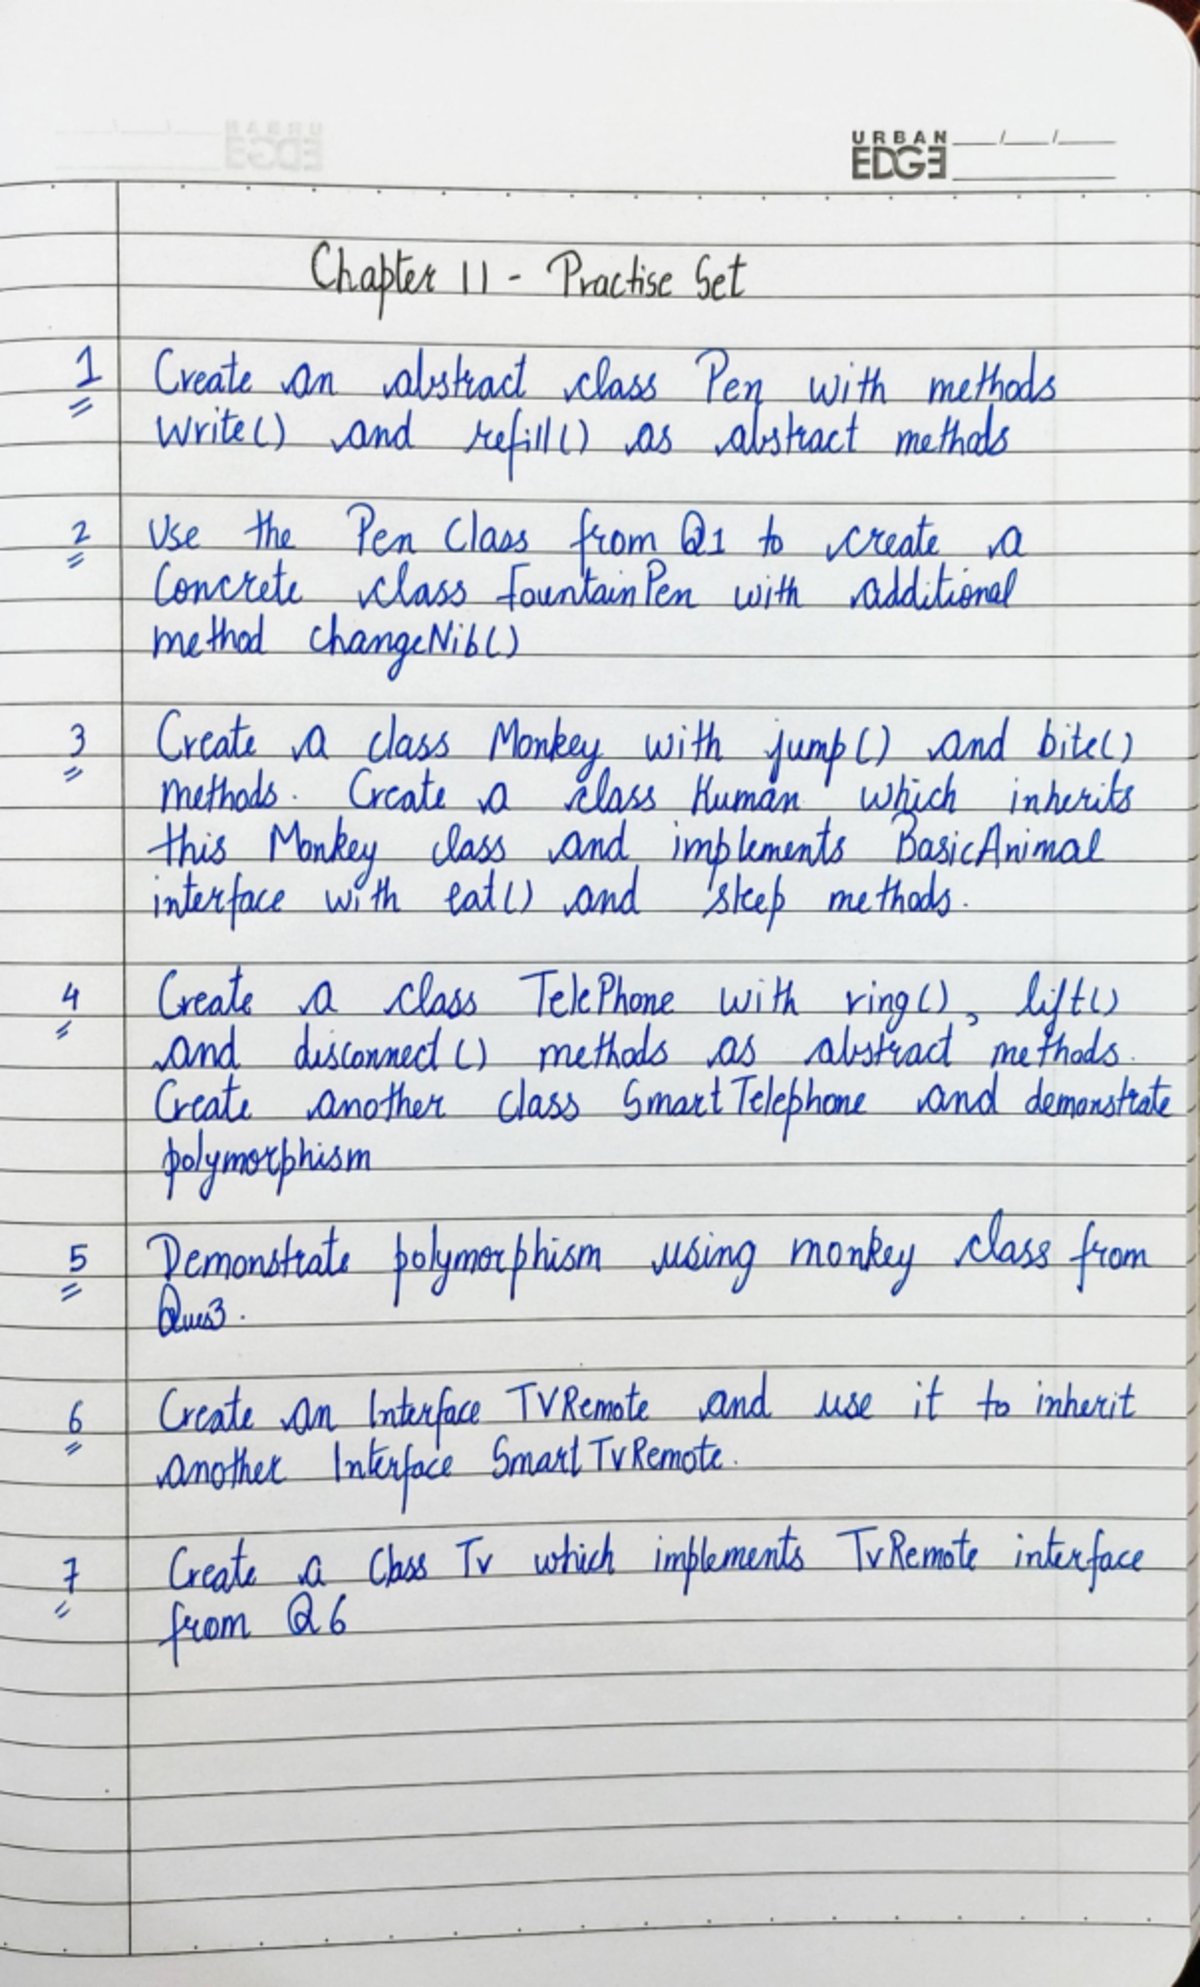 URBAN
EDGE
Chapter 11 - Practise Set
1 Create an abstract class Pen with methods
write() and refill() as abstract methods
2 Use the Pen Class from Q1 to create a
Concrete class fountainPen with additional
method changeNib()
3 Create a class Monkey with jump() and bite()
methods. Create a class Human which inherits
this Monkey class and implements BasicAnimal
interface with eat() and sleep methods.
4 Create a class TelePhone with ring(), lift()
and disconnect() methods as abstract methods.
Create another class SmartTelephone and demonstrate
polymorphism
5 Demonstrate polymorphism using monkey class from
Ques3.
6 Create an Interface TVRemote and use it to inherit
another Interface SmartTvRemote.
7 Create a Class Tv which implements TvRemote interface
from Q6